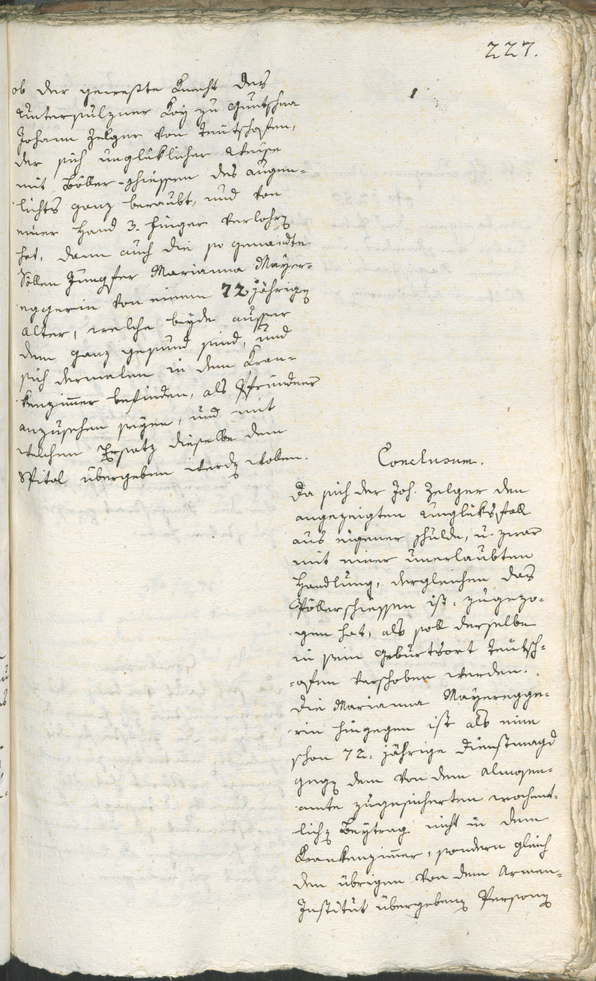 227.
ob der gewesste Knecht des
Unterpulzner Loy zu Guntschna
Johann Zelger von Teutschofen,
der sich unglüklicher Weise
mit Böller-schiessen des Augen-
lichts ganz beraubt, und von
einer Hand 3. Finger verlohrn
hat, dann auch die so genannte
Söllen Jungfer Marianna Mayer-
eggerin von einem 72 jährigen
Alter, welche beyde ausser
dem ganz gesund sind, und
sich dermalen in dem Kran-
kenzimer befinden, als Pfründner
anzusehen seyen, und mit
welchen Ersatz dieselbe dem
Spital übergeben werden wollen.
Conclusum.
Da sich der Joh. Zelger den
angezeigten Unglüksfall
aus eigener Schulde, u. zwar
mit einer unerlaubten
Handlung, dergleichen das
Pöllerschiessen ist, zugezo-
gen hat, als soll derselbe
in sein Geburtsort Teutsch-
ofen verschoben werden.
Die Marianna Mayeregge-
rin hingegen ist als eine
schon 72. jährige Dienstmagd
gegen dem von dem Almosen-
amte zugesicherten wochent-
lichen Beytrag nicht in dem
Krankenzimer, sondern gleich
den übrigen von dem Armen-
Institut übergebenen Personen